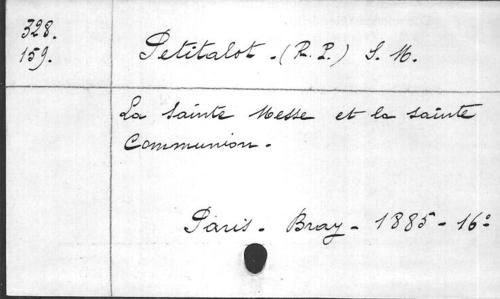 328.
159.
Petitalot. (R. P.) S. M.
La Sainte Messe et la sainte
Communion.
Paris. Bray. 1885 - 16°